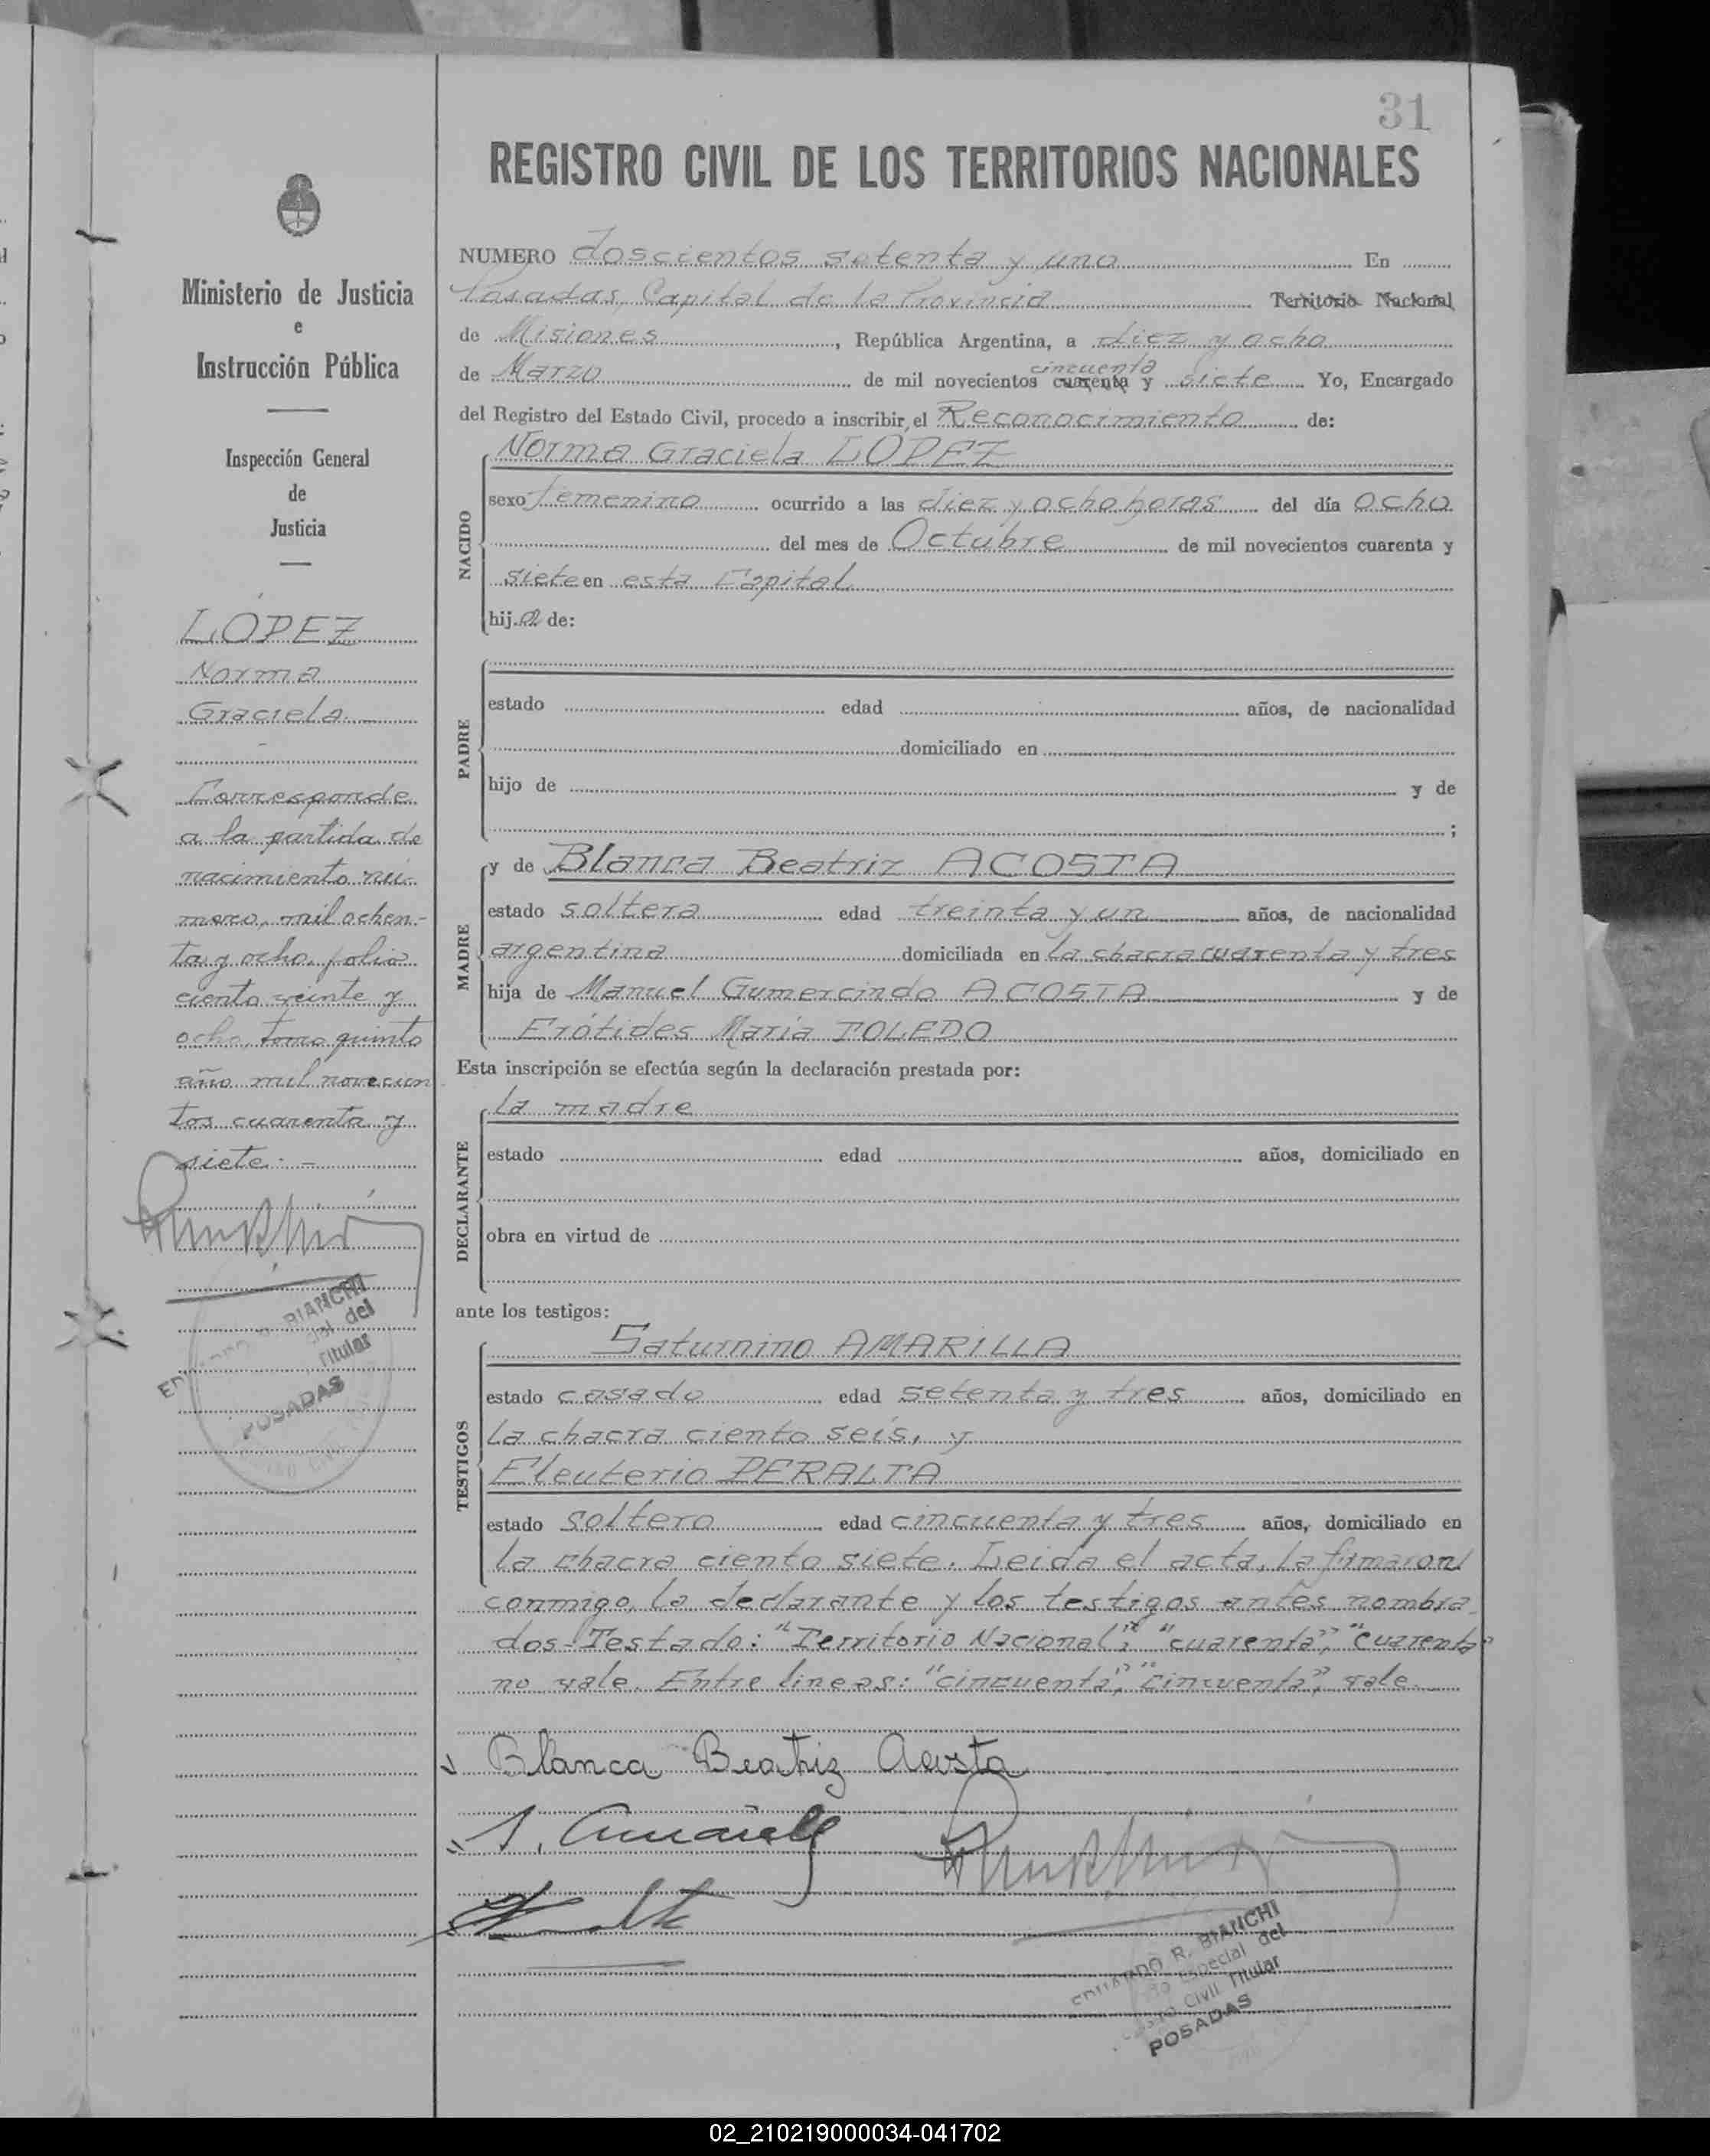 31
REGISTRO CIVIL DE LOS TERRITORIOS NACIONALES
Ministerio de Justicia
e
Instrucción Pública
Inspección General
de
Justicia
LÓPEZ
Norma
Graciela
Corresponde
a la partida de
nacimiento nú-
mero, mil ochen-
ta y ocho, folio
ciento veinte y
ocho, tomo quinto
año mil novecien
tos cuarenta y
siete.-
BIANCHI
del
Titular
POSADAS
NUMERO doscientos setenta y uno En
Posadas, Capital de la Provincia Territorio Nacional
de Misiones, República Argentina, a diez y ocho
cincuenta
de Marzo de mil novecientos cuarenta y siete Yo, Encargado
del Registro del Estado Civil, procedo a inscribir el Reconocimiento de:
NACIDO
Norma Graciela LÓPEZ
sexo femenino ocurrido a las diez y ocho horas del día ocho
del mes de Octubre de mil novecientos cuarenta y
siete en esta Capital
hij a de:
PADRE
estado edad años, de nacionalidad
domiciliado en
hijo de y de
;
MADRE
y de Blanca Beatriz ACOSTA
estado soltera edad treinta y un años, de nacionalidad
argentina domiciliada en la chacra cuarenta y tres
hija de Manuel Gumercindo ACOSTA y de
Erótides María TOLEDO
Esta inscripción se efectúa según la declaración prestada por:
DECLARANTE
la madre
estado edad años, domiciliado en
obra en virtud de
ante los testigos:
TESTIGOS
Saturnino AMARILLA
estado casado edad setenta y tres años, domiciliado en
la chacra ciento seis, y
Eleuterio PERALTA
estado soltero edad cincuenta y tres años, domiciliado en
la chacra ciento siete. Leida el acta, la firmaron
conmigo, la declarante y los testigos antes nombra
dos-Testado: "Territorio Nacional", "cuarenta", "cuarenta"
no vale. Entre lineas: "cincuenta", "cincuenta", vale.
Blanca Beatriz Acosta
R. BIANCHI
Especial del
Civil Titular
POSADAS
02_210219000034-041702